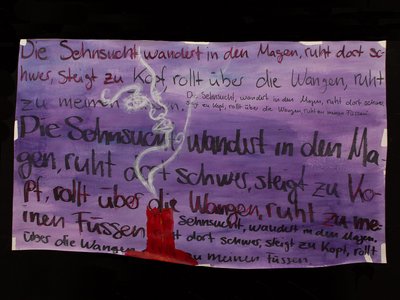 Die Sehnsucht wandert in den Magen, ruht dort sc-
hwer, steigt zu Kopf, rollt über die Wangen, ruht
zu meinen Füssen.
Die Sehnsucht, wandert in den Magen, ruht dort schwer,
steigt zu Kopf, rollt über die Wangen, ruht zu meinen Füssen.
Die Sehnsucht wandert in den Ma-
gen, ruht dort schwer, steigt zu Ko-
pf, rollt über die Wangen, ruht zu me-
inen Füssen
Sehnsucht, wandert in den Magen,
ruht dort schwer, steigt zu Kopf, rollt
über die Wangen zu meinen Füssen.